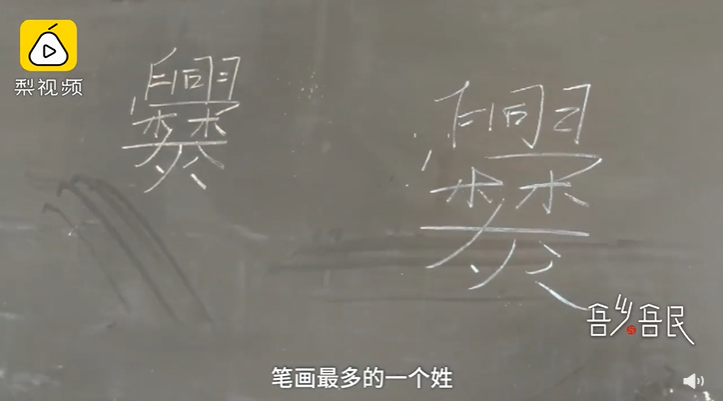 梨视频
爨 爨
吾乡与吾民
笔画最多的一个姓